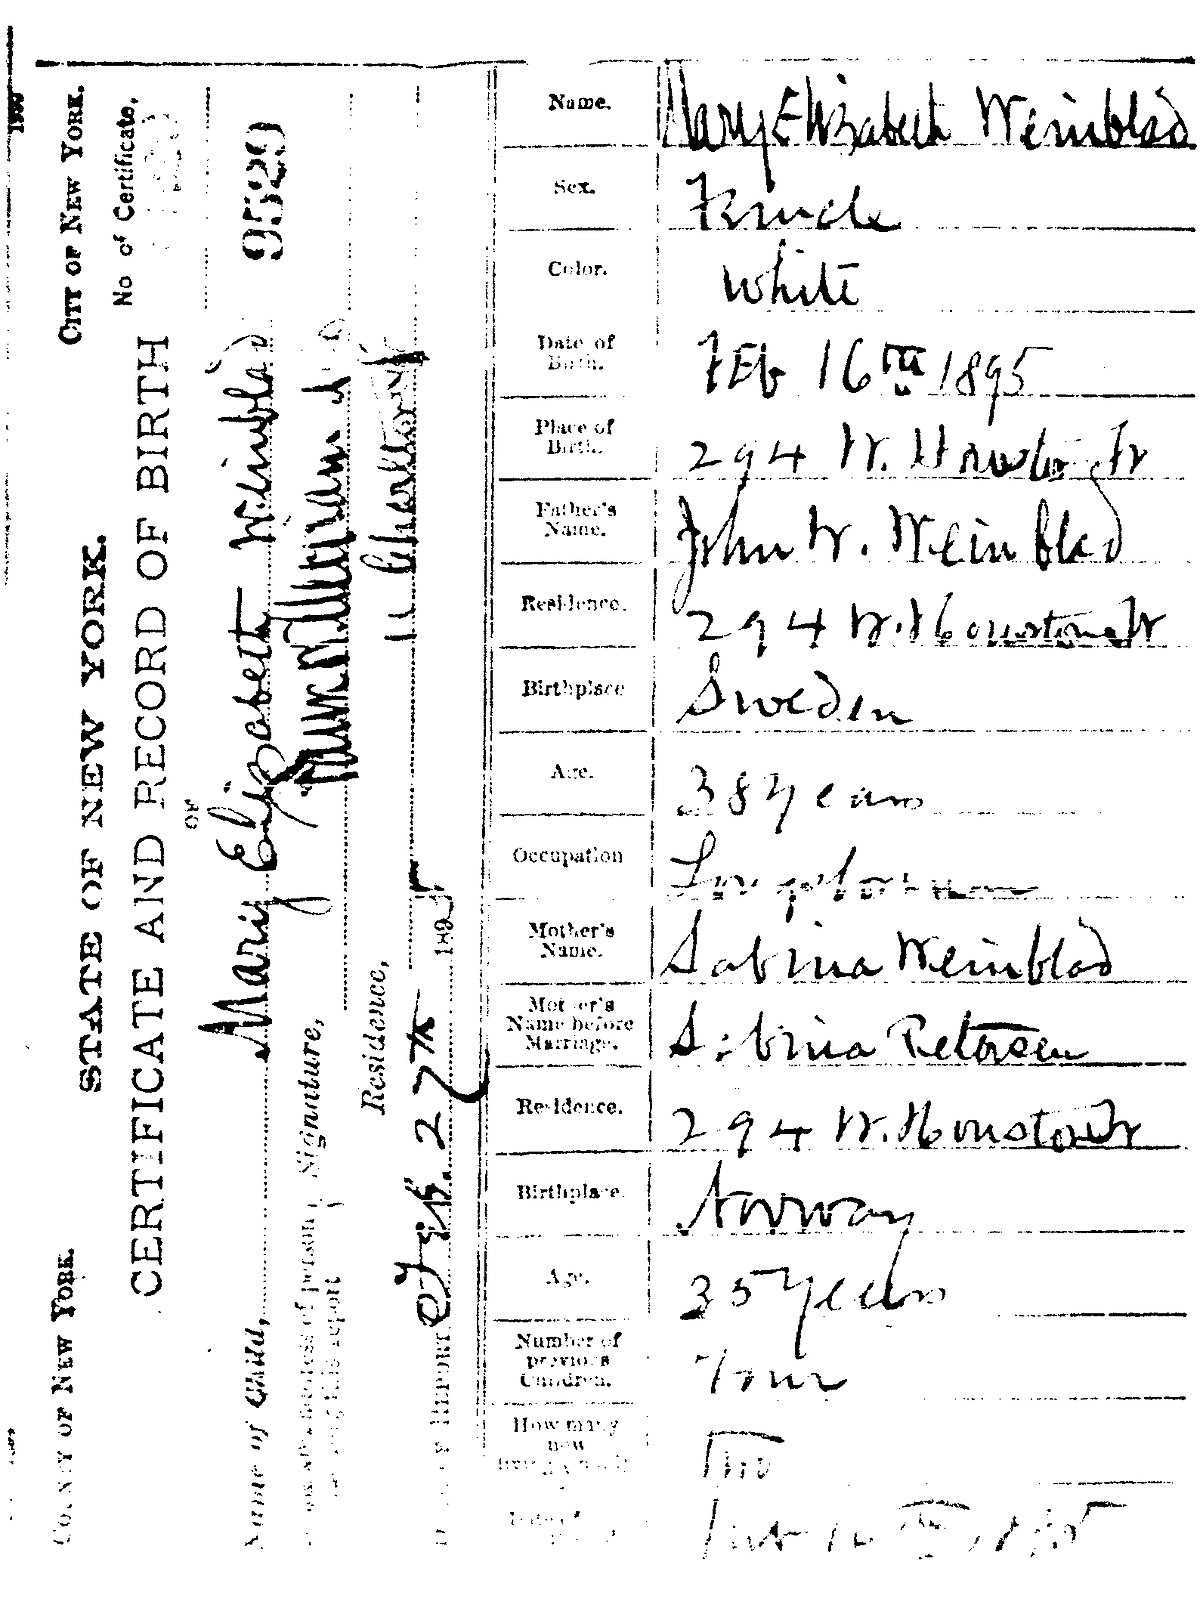 COUNTY OF NEW YORK.
CITY OF NEW YORK.
STATE OF NEW YORK.
No of Certificate,
CERTIFICATE AND RECORD OF BIRTH
OF
Name of Child, Mary Elizabeth Weinblad
9529
Signature,
person
this report
Residence, 11 Charlton
REPORT Feb. 27th 1895
Name. Mary Elizabeth Weinblad
Sex. Female
Color. White
Date of Birth. FEb 16TH 1895
Place of Birth. 294 W. Houston St
Father's Name. John W. Weinblad
Residence. 294 W. Houston St
Birthplace Sweden
Age. 38 years
Occupation Longshoreman
Mother's Name. Sabina Weinblad
Mother's Name before Marriage. Sabina Petersen
Residence. 294 W. Houston St
Birthplace. Norway
Age. 35 Years
Number of previous Children. Four
How many now Two
Feb 16th 1895